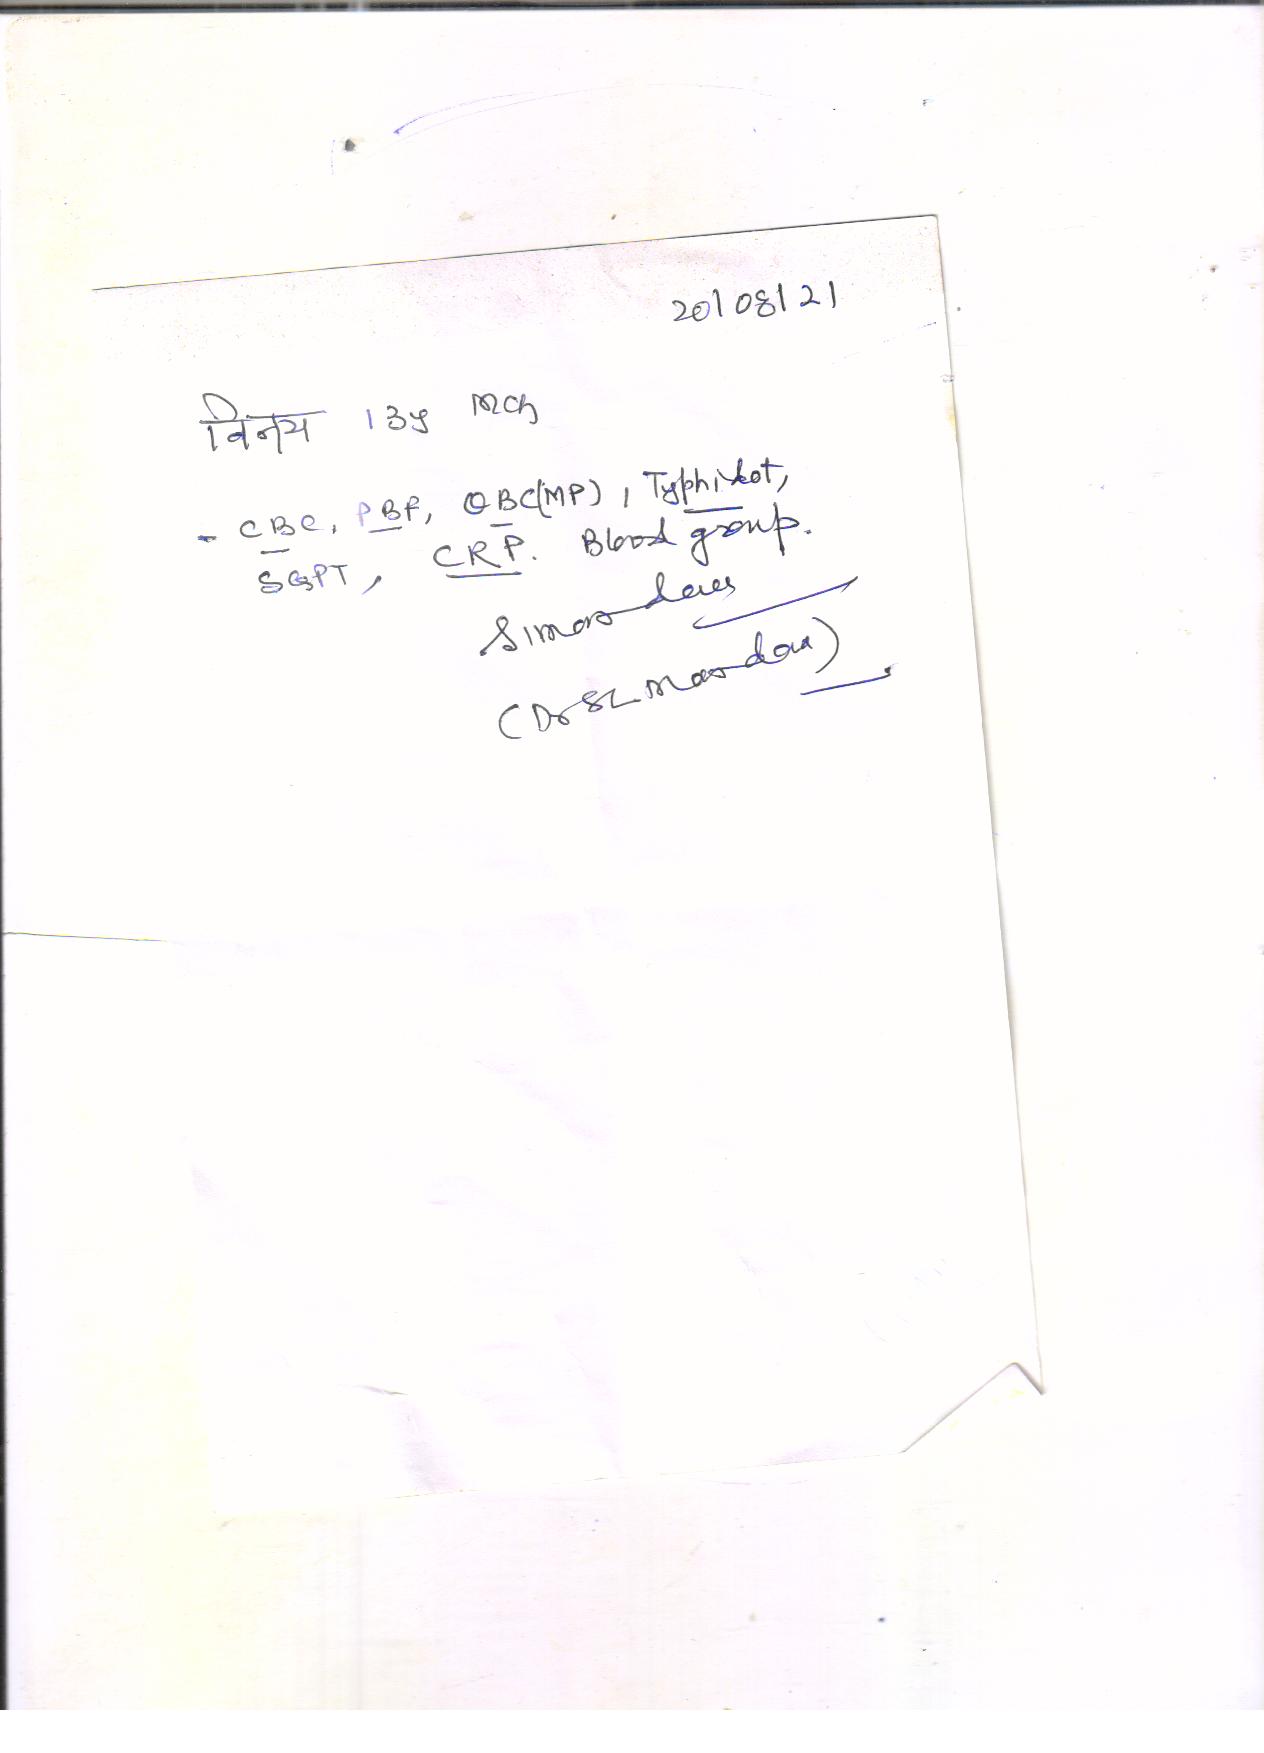 20/08/21
विनय 13y mch
- CBC, PBF, QBC(MP), Typhidot,
SGPT, CRP. Blood group.
(Dr SL Mandar)